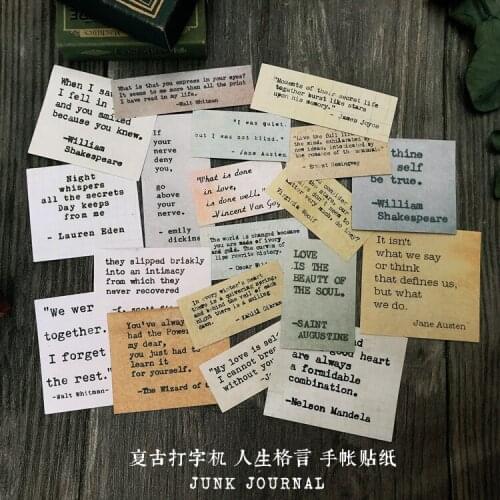 When I saw
I fell in
and you smiled
because you knew.
-William
Shakespeare
What is that you express in your eyes?
It seems to me more than all the print
I have read in my life.
-Walt Whitman
"Moments of their secret life
together burst like stars
upon his memory."
- James Joyce
If
your
nerve
deny
you,
go
above
your
nerve.
- emily
dickins
"I was quiet,
but I was not blind."
- Jane Austen
"Live the full life
the mind, exhilarated by
new ideas, intoxicated by
the romance of the unusual."
- Ernest Hemingway
thine
self
be true.
-William
Shakespeare
Night
whispers
all the secrets
Day keeps
from me
- Lauren Eden
"What is done
in love,
is done well."
-Vincent Van Go
Virginia Woolf
they slipped briskly
into an intimacy
from which they
never recovered
The world is changed because
you are made of ivory
and gold. The curves of
lips rewrite history.
- Oscar Wi
LOVE
IS THE
BEAUTY OF
THE SOUL.
-SAINT
AUGUSTINE
It isn't
what we say
or think
that defines us,
but what
we do.
Jane Austen
In every winter's heart
there is a quivering spring,
and behind the veil of each
night there is a smiling
dawn.
"We wer
together.
I forget
the rest."
-Walt Whitman-
You've always
had the Power
my dear,
you just had to
learn it
for yourself.
-The Wizard of
"My love is sel
I cannot brea
without yo
good heart
are always
a formidable
combination.
-Nelson Mandela
复古打字机 人生格言 手帐贴纸
JUNK JOURNAL